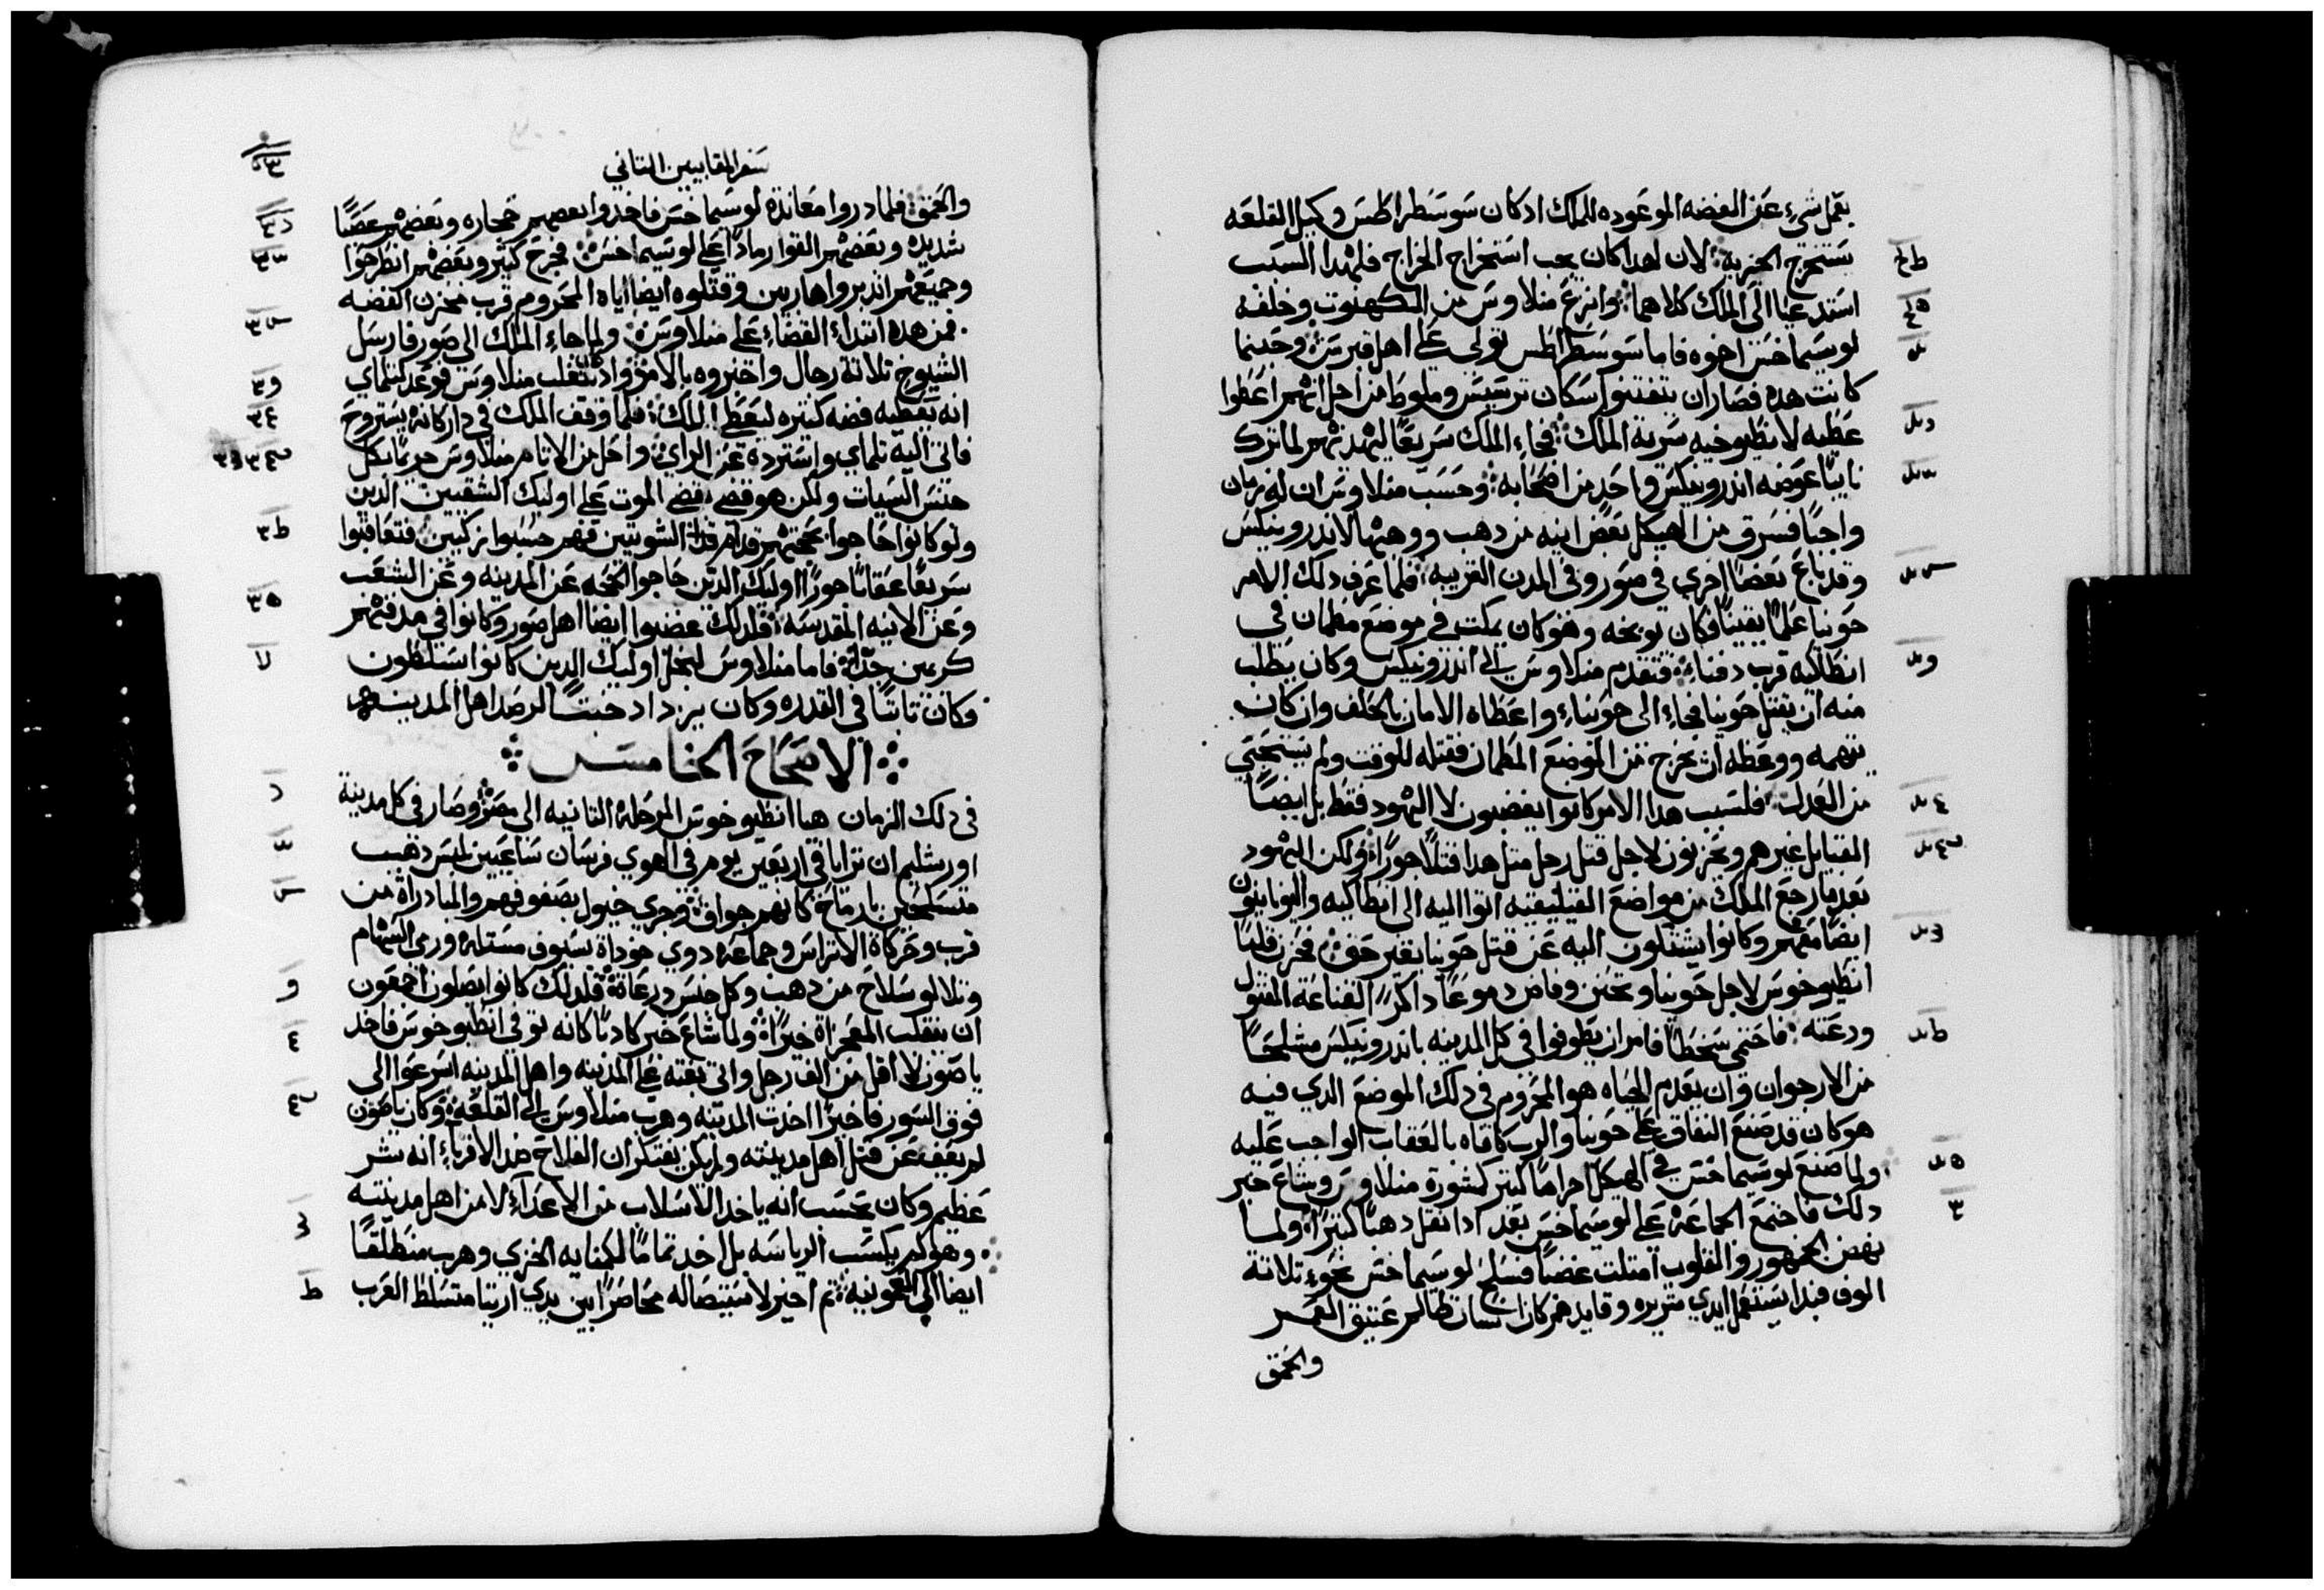 يعمل شيء عن الفضه الموعوده للملك ادكان سوسطراطس وكيل القلعه
يستخرج الجزية لان لهدا كان يجب استخراج الخراج فلهدا السبب
استدعيا الى الملك كلاهما وانزع منلاوس من الكهنوت وخلفه
لوسيماخس اخوه فاما سوسطراطس تولى على اهل قبرس وحينما
كانت هده فصار ان يتفتنوا سكان ترسيس وملوط من اجل انهم اعطوا
عطيه لانطيوخيه سرية الملك فجاء الملك سريعًا ليهدنهم لما ترك
نايبًا عوضه اندرونيكس واحد من اصحابه وحسب منلاوس ان له زمان
واجبًا فسرق من الهيكل بعض انيه من دهب ووهبها لاندرونيكس
وقد باع بعضا اخرى في صور وفي المدن القريبه فلما عرف دلك الامر
حونيا علمًا يقينًا فكان يوبخه وهو كان يمكت في موضع مطمان في
انطاكيه قرب دفناء فتقدم منلاوس الى اندرونيكس وكان يطلب
منه ان يقتل حونيا فجاء الى حونياء واعطاه الامان بالحلف وان كان
يتهمه ووعظه ان يخرج من الموضع المطمان فقتله للوقت ولم يستحيي
من العدل فلسبب هدا الامر كانوا يغضبون لا اليهود فقط بل ايضًا
القبايل غيرهم ويحزنون لاجل قتل رجل متل هدا قتلًا جورًا ولكن اليهود
بعد ما رجع الملك من مواضع القيليقيه اتوا اليه الى انطاكيه واليونانيون
ايضا معهم وكانوا يشتكون اليه عن قتل حونيا بغير حق فحزن قلبًا
انطيوخوس لاجل حونيا وتحنن وفاض دموعًا داكرًا القناعة المقتول
ودعته فاحتمى سخطًا فامر ان يطوفوا في كل المدينه باندرونيكس مشلحًا
من الارجوان وان يعدم الحياه هو المحروم في دلك الموضع الدي فيه
هو كان قد صنع النفاق على حونيا والرب كافاه بالعقاب الواجب عليه
ولما صنع لوسيماخس في الهيكل احرامًا كتير كشورة منلاوس وشاع خبر
دلك فاجتمع الجماعة على لوسيماخس بعد ادا نقل دهبًا كتيرًا ولما
نهض الجمهور والقلوب امتلت غضبًا فسلح لوسيماخس نحوء تلاتة
الوف فبدا يستعمل ايدي شريره وقايدهم كان انسان ظالم عتيق العمر
والحمق
سفر المقابيين التاني
والحمق فلما دروا معاندة لوسيماخس فاخدوا بعضهم حجاره وبعضهم عصيًا
شديده وبعضهم القوا رمادًا على لوسيماخس فجرح كتير وبعضهم انطرحوا
وجميعهم اندبروا هاربين وقتلوه ايضا اياه المحروم قرب مخزن الفضه
فمن هده ابتداء القضاء على منلاوس ولما جاء الملك الى صور فارسل
الشيوخ تلاتة رجال واخبروه بالامر واد كان تغلب منلاوس فوعد لتلماي
انه يعطيه فضه كتيره ليعظ الملك فلما وقف الملك في دار كانه يستروح
فاتى اليه تلماي واسترده عن الراي واحل من الاتام منلاوس جريمًا بكل
جنس السيات ولكن هو قضى قضى الموت على اوليك الشقيين الدين
ولو كانوا حاجوا بحجتهم قدام الشوتيين فهم حسبوا زكيين فتعاقبوا
سريعًا عقابًا جورًا اوليك الدين حاجوا الحجه عن المدينه وعن الشعب
وعن الانيه المقدسه فلدلك غضبوا ايضا اهل صور وكانوا في مدفنهم
كريمين جدًا فاما منلاوس لبخل اوليك الدين كانوا يتسلطون
وكان تابتًا في القدره وكان يزداد خبتًا لرصد اهل المدينه
الاصحاح الخامس
في دلك الزمان هيا انطيوخوس المرحلة التانيه الى مصر وصار في كل مدينة
اورشليم ان ترايا في اربعين يوم في الهوي فرسان ساعيين لبس دهب
متسلحين بارماح كانهم جواق وجري خيول بصفوفهم والمبادراة من
قرب وحركاة الاتراس وجماعة دوي خوداة بسيوف مستله ورمى السهام
وتلالو سلاح من دهب وكل جنس درعاة فلدلك كانوا يصلون اجمعون
ان تنقلب المعجزاة خيرًا ولما شاع خبر كادبًا كانه توفى انطيوخوس فاخد
ياصون لا اقل من الف رجل واتى بغته على المدينه واهل المدينه اسرعوا الى
فوق السور فاخيرًا اخدت المدينه وهرب منلاوس الى القلعة وكان ياصون
لم يعف عن قتل اهل مدينته ولم يكن يفتكر ان الفلاح ضد الاقرباء انه شر
عظيم وكان يحسب انه ياخد الاسلاب من الاعداء لا من اهل مدينته
وهو لم يكسب الرياسه بل اخد تمامًا لكمنايه الخزي وهرب منطلقًا
ايضا الى العمونيه تم اخير لاستيصاله محاصرًا بين يدي اريتا متسلط العرب